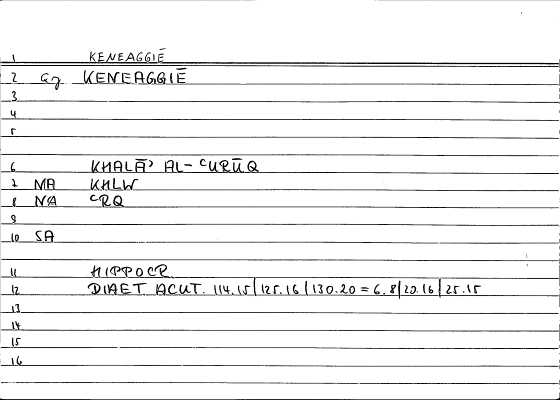 1 KENEAGGIĒ
2 Gj KENEAGGIĒ
3
4
5
6 KHALĀʾ AL-ʿURŪQ
7 NA KHLW
8 NA ʿRQ
9
10 SA
11 HIPPOCR
12 DIAET. ACUT. 114.15|125.16|130.20 = 6.8|20.16|25.15
13
14
15
16